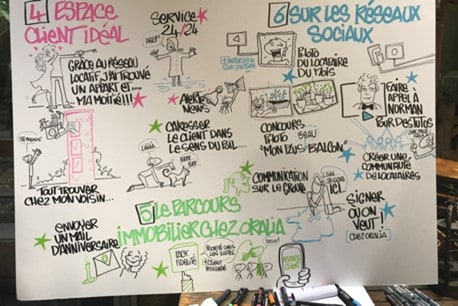 4 ESPACE
CLIENT IDÉAL
GRÂCE AU RÉSEAU
LOCATIF, J'AI TROUVÉ
UN APPART ET...
MA MOITIÉ!!!
TOUT TROUVER
CHEZ MON VOISIN...
ENVOYER
UN MAIL
D'ANNIVERSAIRE
SERVICE
24/24
ALERTE
NEWS
CARESSER
LE CLIENT DANS
LE SENS DU POIL...
5 LE PARCOURS
IMMOBILIER CHEZ ORALIA
PACK
FIDÉLITÉ
6 SUR LES RÉSEAUX
SOCIAUX
PHOTO
DU LOCATAIRE
DU MOIS
CONCOURS
PHOTO BEAU
"MON PLUS BALCON"
COMMUNICATION
SUR LE GROUPE
FAIRE
APPEL À
NORMAN
POUR DES TUTOS
CRÉER UNE
COMMUNAUTÉ
DE LOCATAIRES
ICI
SIGNER
OÙ ON
VEUT!
CHEZ ORALIA